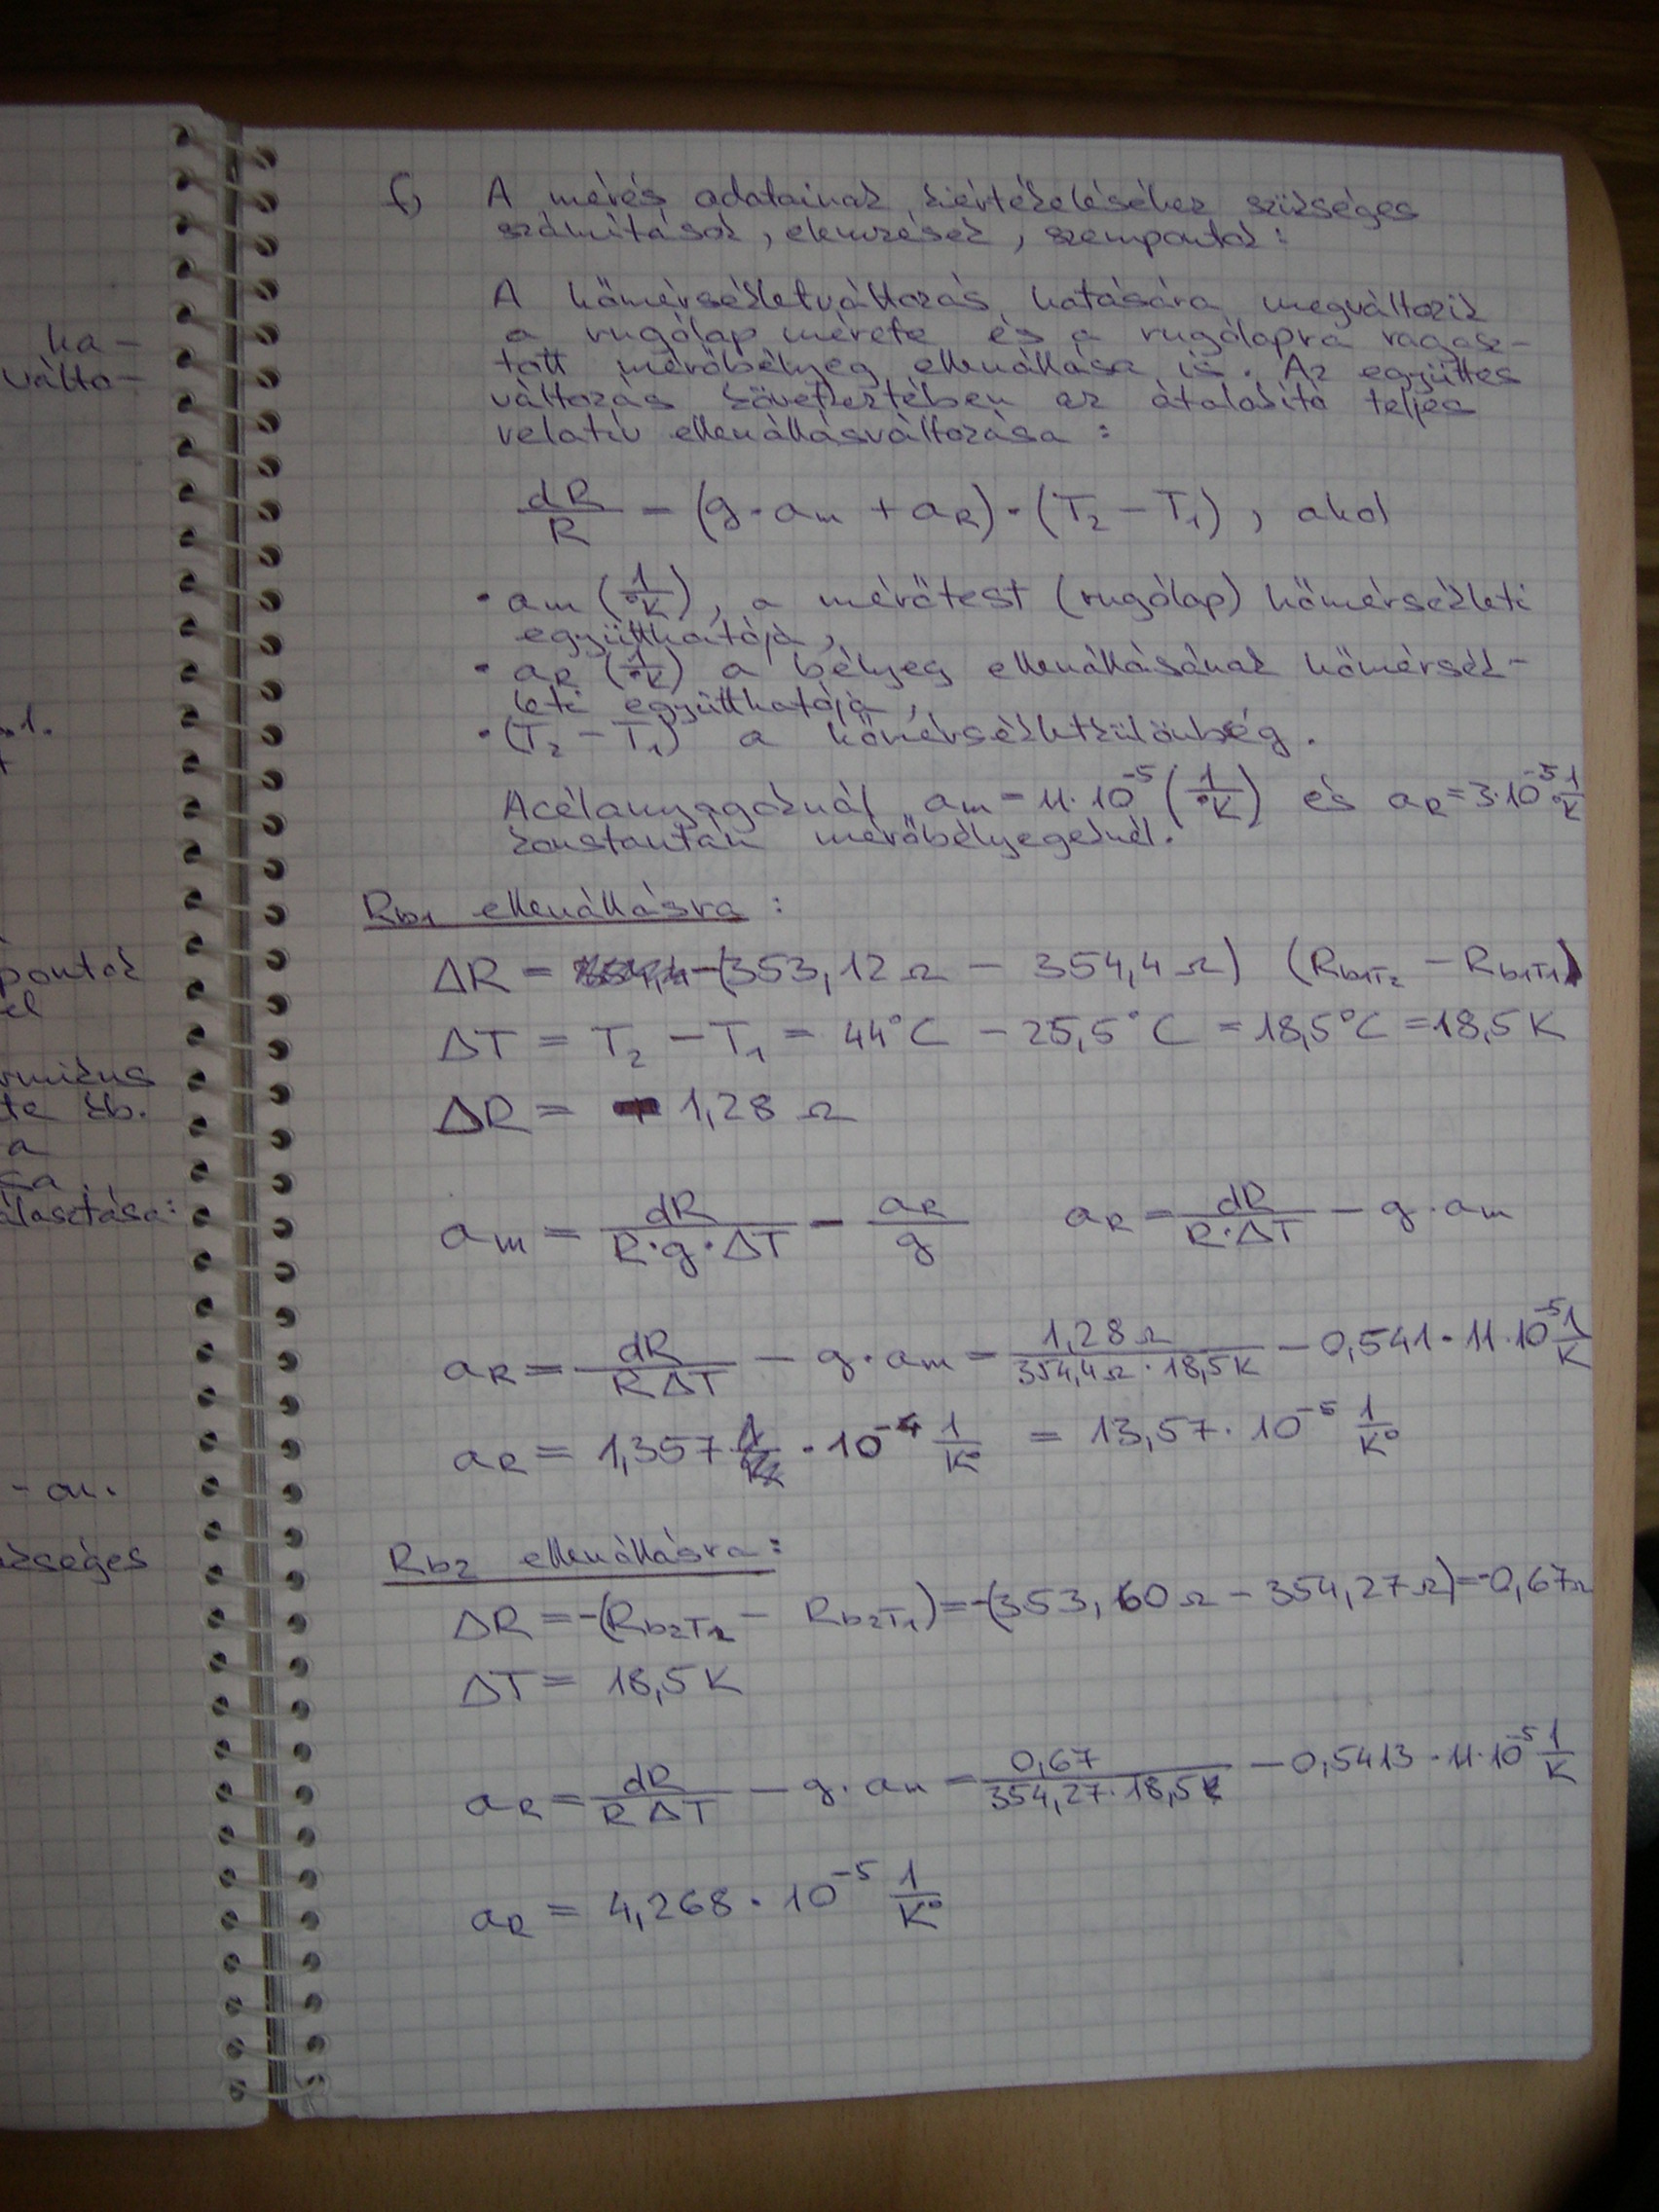 ha-
válto-
.1.
pontok
el
a
álasztása:
zséges
f) A mérés adatainak kiértékeléséhez szükséges
számítások, elemzések, szempontok:
A hőmérsékletváltozás hatására megváltozik
a rugólap mérete és a rugólapra ragasz-
tott mérőbélyeg ellenállása is. Az együttes
változás következtében az átalakító teljes
relatív ellenállásváltozása:
dR/R = (g · am + aR) · (T2 - T1), ahol
· am (1/°K), a mérőtest (rugólap) hőmérsékleti
együtthatója,
· aR (1/°K) a bélyeg ellenállásának hőmérsék-
leti együtthatója,
· (T2 - T1) a hőmérsékletkülönbség.
Acélanyagoknál am = 11·10^-5 (1/°K) és aR = 3·10^-5 1/°K
konstantán mérőbélyegeknél.
Rb1 ellenállásra:
ΔR = -(353,12 Ω - 354,4 Ω) (Rb1T2 - Rb1T1)
ΔT = T2 - T1 = 44°C - 25,5°C = 18,5°C = 18,5 K
ΔR = 1,28 Ω
am = dR/(R·g·ΔT) - aR/g aR = dR/(R·ΔT) - g·am
aR = dR/(R ΔT) - g·am = 1,28 Ω/(354,4 Ω · 18,5 K) - 0,541 · 11·10^-5 1/K
aR = 1,357 · 10^-4 1/K° = 13,57 · 10^-5 1/K°
Rb2 ellenállásra:
ΔR = -(Rb2T2 - Rb2T1) = -(353,60 Ω - 354,27 Ω) = -0,67 Ω
ΔT = 18,5 K
aR = dR/(R ΔT) - g·am = 0,67/(354,27 · 18,5 K) - 0,5413 · 11·10^-5 1/K
aR = 4,268 · 10^-5 1/K°